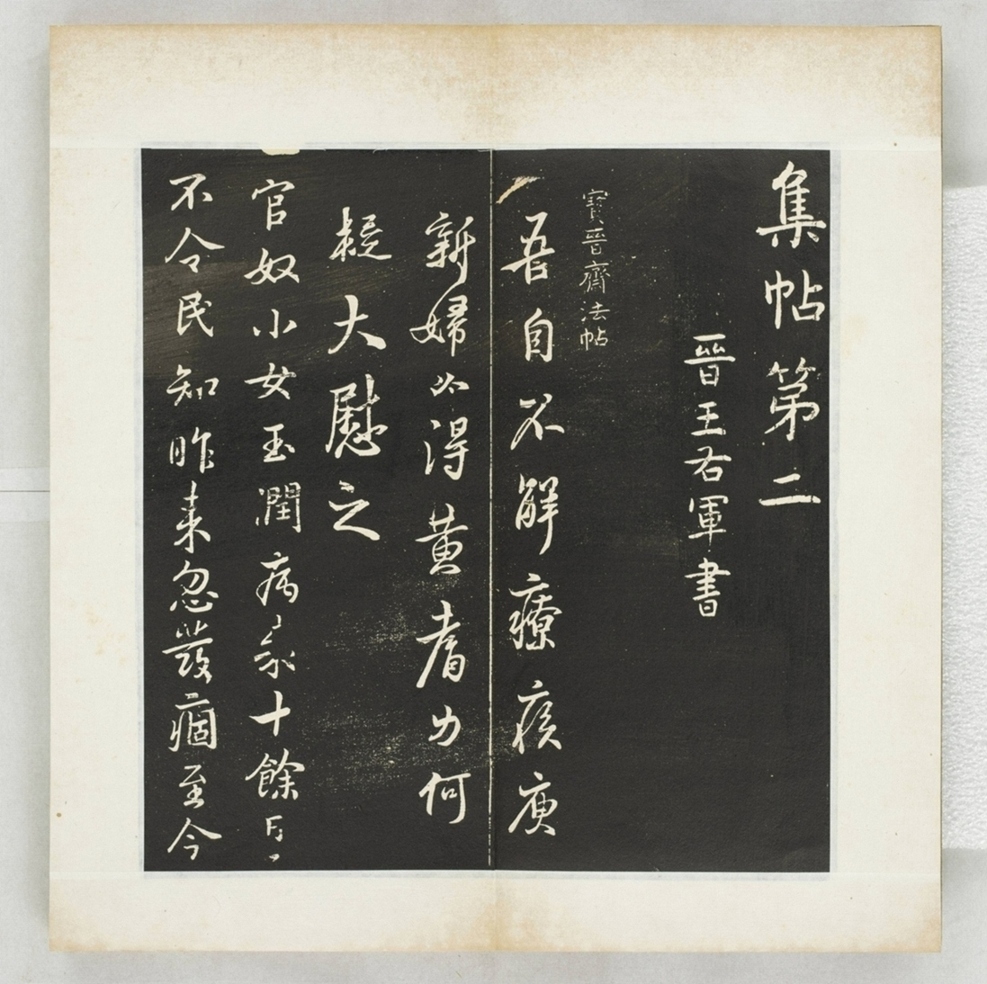 集帖第二
晉王右軍書
寶晉齋法帖
吾自不解療疾庾
新婦必得黄耆力何
極大慰之
官奴小女玉潤病來十餘日
不令民知昨來忽發痼至今